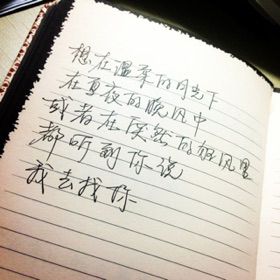 想在温柔的月光下
在夏夜的晚风中
或者在突然的烟风里
都听到你说
我去找你